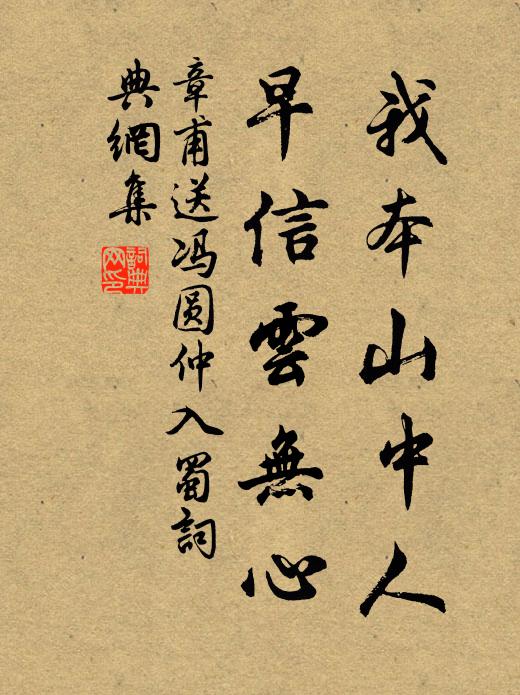 我本山中人
早信雲無心
章甫送冯圆仲入蜀詞
典網集
詞典
网印